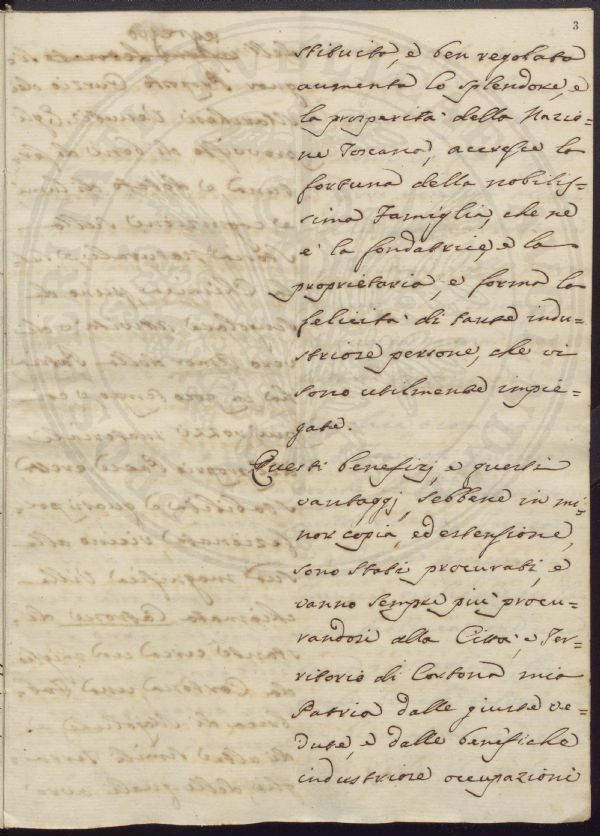 3
stituita, e ben regolata
aumenta lo splendore, e
la prosperità della Nazio=
ne Toscana, accresce la
fortuna della nobilis=
sima Famiglia, che ne
è la fondatrice, e la
proprietaria, e forma la
felicità di tante indu=
striose persone, che vi
sono utilmente impie=
gate.
Questi benefizj, e questi
vantaggj, sebbene in mi=
nor copia, ed estensione,
sono stati procurati, e
vanno sempre più procu=
randosi alla Città, e Ter=
ritorio di Cortona mia
Patria dalle giuste ve=
dute, e dalle benefiche
industriose occupazioni